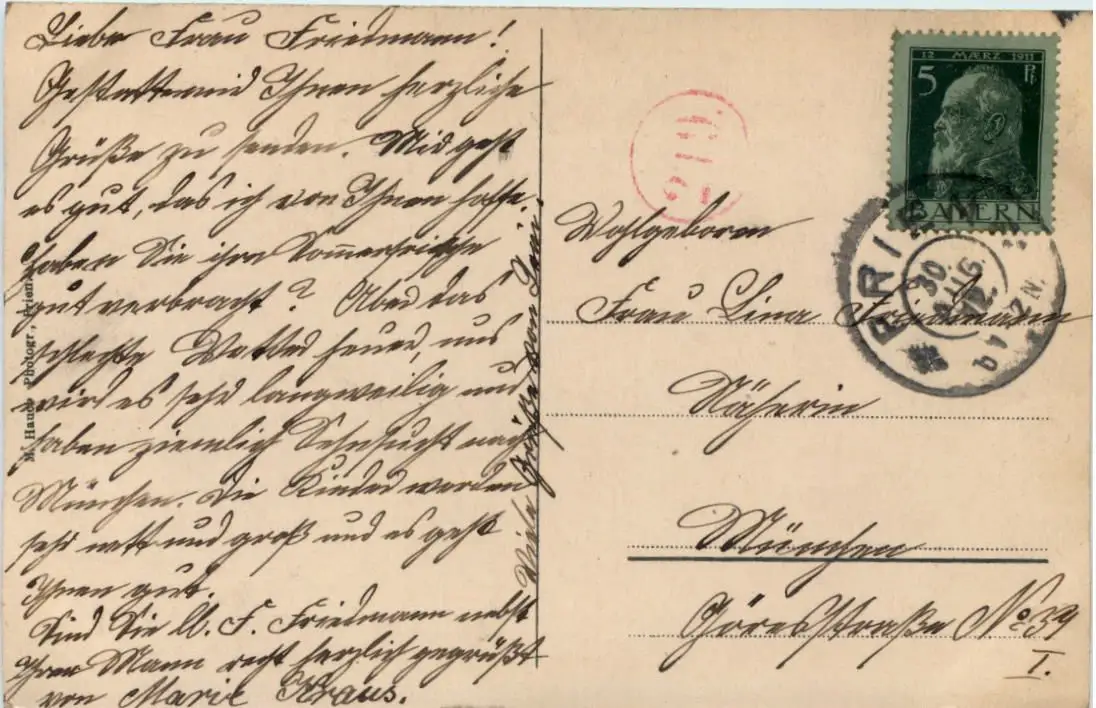 Liebe Frau Friedmann!
Gestatte mid Ihnen herzliche
Grüße zu senden. Mid geht
es gut, das ich von Ihnen hoffe.
Haben Sie ihre Sommerfrische
gut verbracht? Aber das
schlechte Wetter heuer, uns
wird es sehr langweilig und
haben ziemlich Sehnsucht nach
München. Die Kinder werden
sehr nett und groß und es geht
Ihnen gut.
Sind Sie lb. F. Friedmann nebst
Ihren Mann recht herzlich gegrüßt
von Marie Kraus.
Viele Grüße von
M. Hauck Photogr., Prien
12 MÆRZ 1911
5 Pf
BAYERN
PRIEN
30 AUG. 12
12 N.
Wohlgeboren
Frau Lina Friedmann
Näherin
München
Görresstraße No 39
I.